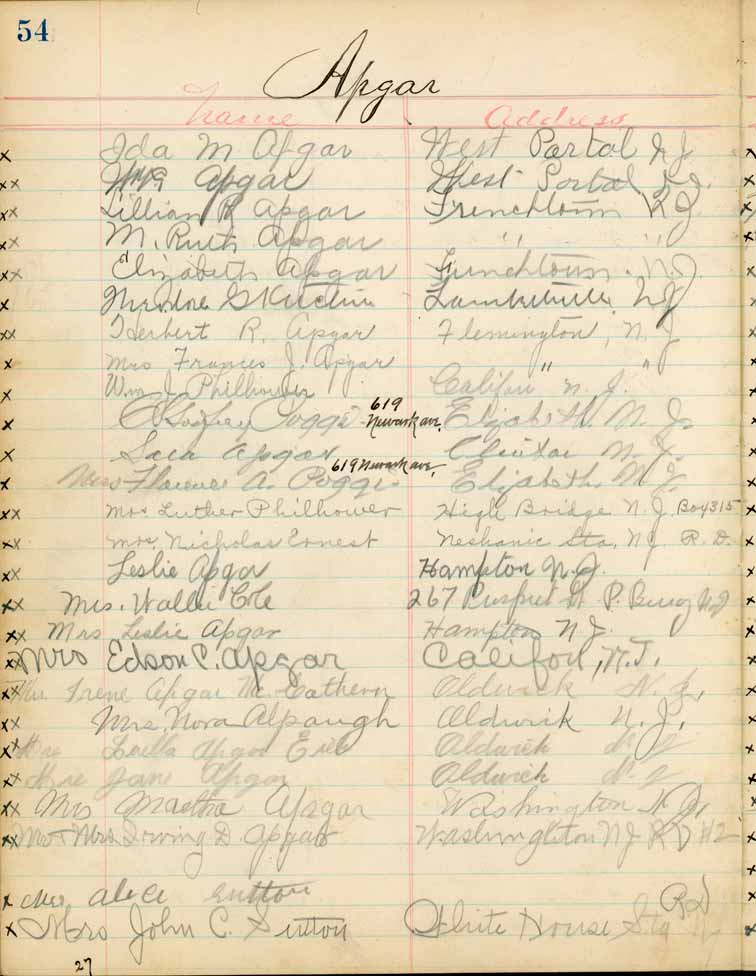 54
Apgar
Name Address
x Ida M Apgar West Portal N J
xx Apgar West Portal N.J.
xx Lillian R Apgar Frenchtown N J
x M. Ruth Apgar " "
xx Elizabeth Apgar Frenchtown. N.J.
x Lambertville NJ
xx Herbert R. Apgar Flemington, N. J
x Mrs Frances J. Apgar " "
x Wm J. Philhower Califon N. J.
x Godfrey Poggi 619 Newark ave, Elizabeth. N. J.
x Apgar Clinton N. J.
x Mrs Florence A. Poggi 619 Newark ave, Elizabeth N J.
xx Mrs Luther Philhower High Bridge N. J. Box 315
xx Mrs. Nicholas Ernest Neshanic Sta. NJ R. D.
xx Leslie Apgar Hampton N.J.
xx Mrs. Cole 267 Prospect St P. Burg NJ
xx Mrs Leslie Apgar Hampton NJ.
xx Mrs Edson C. Apgar Califon, N.J.
xx Mrs Irene Apgar Mc Eathern Oldwick N. J.
xx Mrs. Nora Alpaugh Oldwick N. J.
xx Mrs Luella Apgar Oldwick N J
xx Mrs Jane Apgar Oldwick N J
xx Mrs Martha Apgar Washington N. J.
xx Mr + Mrs Irwing D. Apgar Washington NJ R D #2
x Mrs Alice Sutton
x Mrs John C. Sutton White House Sta RD
27